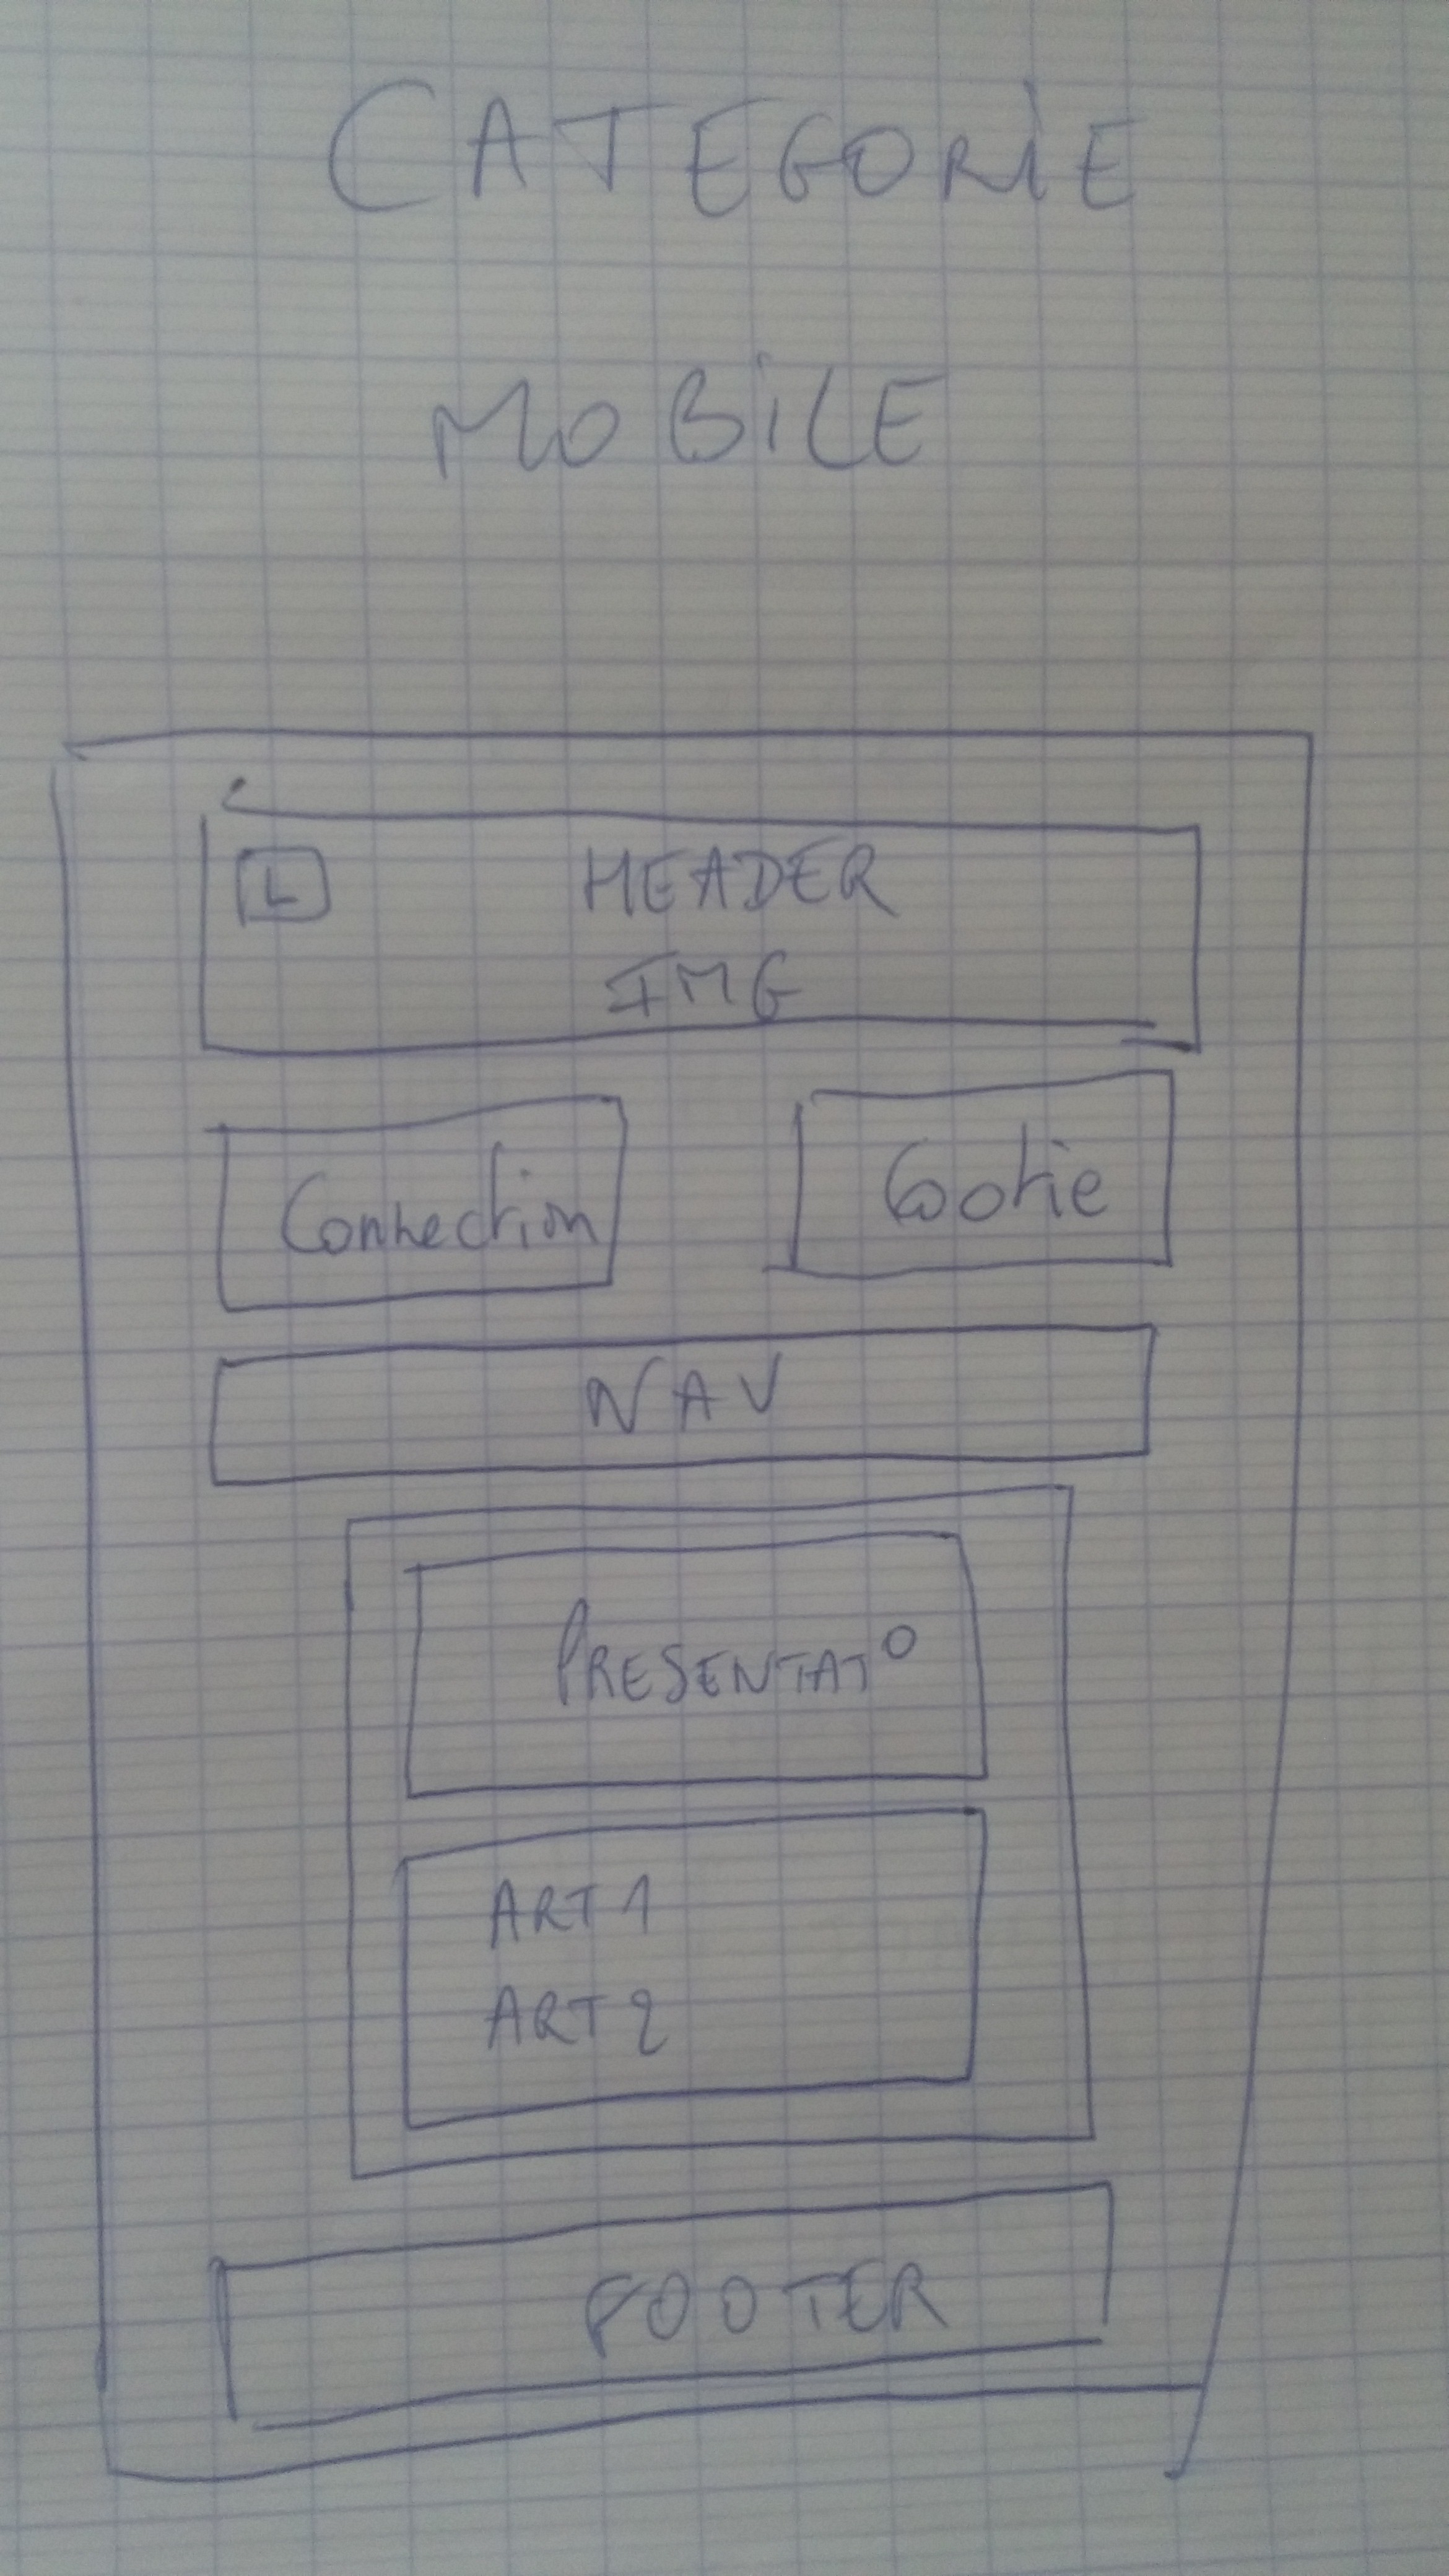 CATEGORiE
MOBiLE
L
HEADER
IMG
Connection
Cookie
NAV
PRESENTAT°
ART 1
ART 2
FOOTER